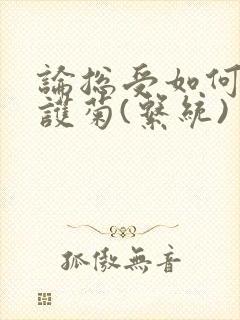 論総受如何
護菊(繫統)
孤傲無音